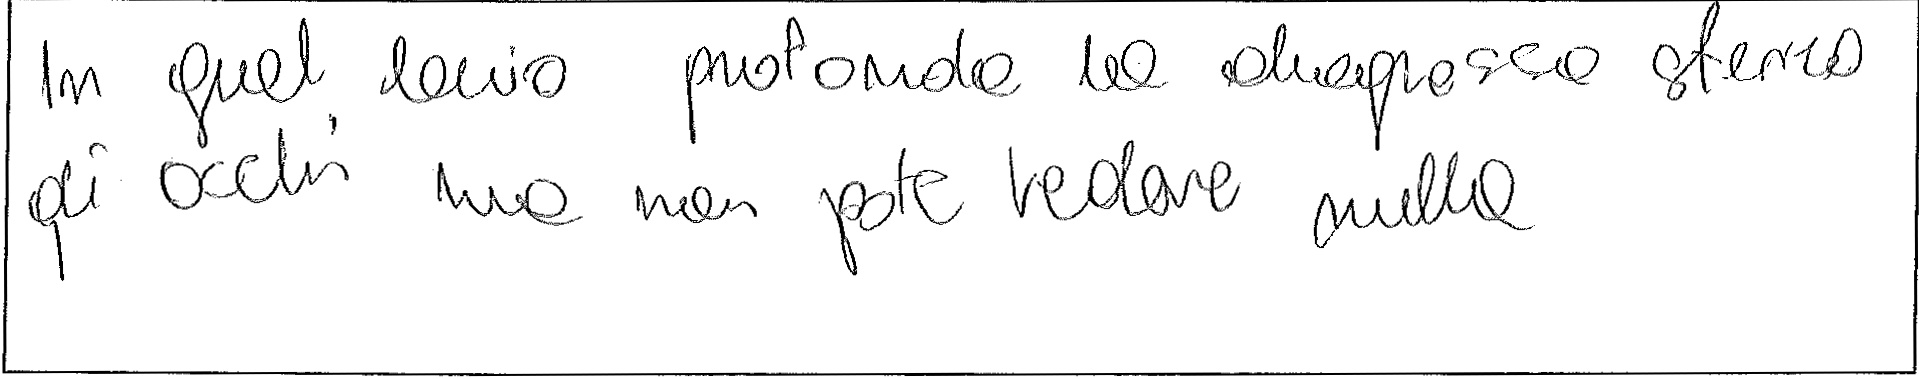 In quel bavio profonda la duagnossa sterzo
gli occhi ma non pote vedere nulla